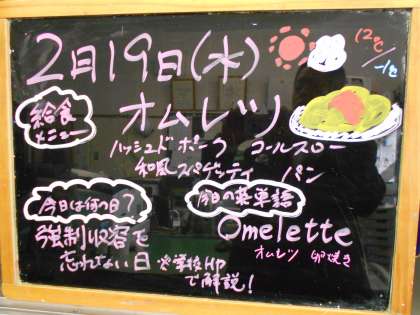 2月19日(水)
12℃/-1℃
給食メニュー
オムレツ
ハッシュドポーク コールスロー
和風スパゲッティ パン
今日は何の日?
強制収容を
忘れない日 ※学校HP
で解説!
今日の英単語
Omelette
オムレツ 卵焼き